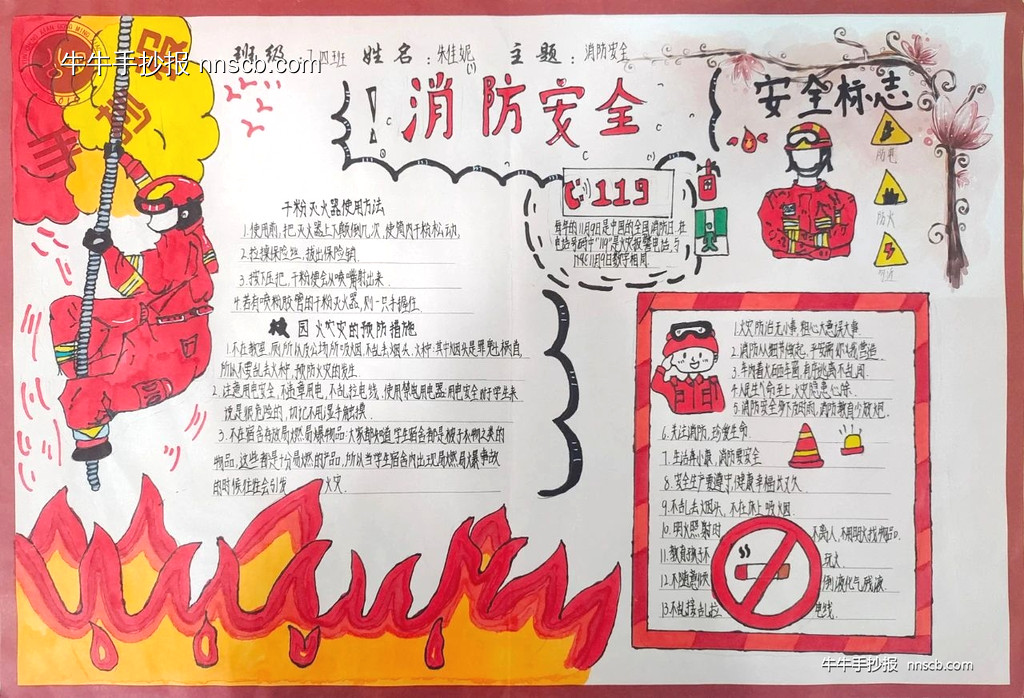 牛牛手抄报 nnscb.com
班级：7.四班 姓名：朱佳妮 主题：消防安全
！消防安全
安全标志
防电
防火
119
每年的11月9日是中国的全国消防日,在
电话号码中"119"是火灾报警电话,与
11月9日数字相同.
干粉灭火器使用方法
1.使用前,把灭火器上下颠倒几次,使筒内干粉松动.
2.拉掉保险丝,拔出保险销.
3.按下压把,干粉便会从喷嘴射出来.
4.若有喷粉胶管的干粉灭火器,则一只手握住.
校园火灾的预防措施
1.不在教室,厕所以及公场所吸烟,不乱丢烟头、火种.
所以不要乱丢火种,预防火灾的发生.
2.注意用电安全,不违章用电,不乱拉电线,使用禁电用电器.用电安全对于学生来
说是很危险的,切记不用湿手触摸.
3.不在宿舍存放易燃易爆物品
物品,这些都是十分易燃的产品,所以当学生宿舍内出现易燃易爆事故
的时候往往会引发 火灾.
1.火灾防治无小事,粗心大意误大事
2.消防从细节做起,平安离你
4.人居生命至上,火灾隐患心除.
6.关注消防,珍爱生命.
7.生活奔小康,消防要安全
8.安全生产要遵守,健康幸福长久.
9.不乱丢烟头,不在床上吸烟.
10.明火照射时 不离人,不用明火找物品.
11.教育孩子不 玩火.
12.不随意倾 倒液化气残液.
13.不乱接乱拉 电线.
牛牛手抄报 nnscb.com